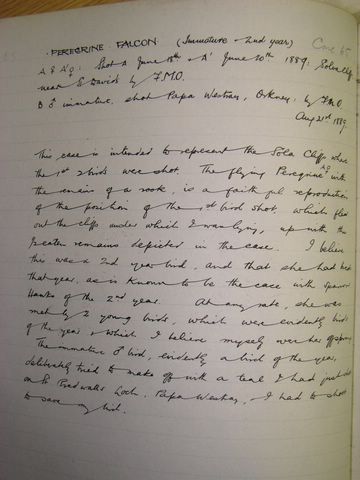 PEREGRINE FALCON (Immature - 2nd year) Case 65
A & A' ♀ : Shot A June 18th - A' June 20th 1889: Solva Cliffs
near St Davids by F.M.O.
B ♂ immature. shot Papa Westray, Orkney: by F.M.O.
Aug 21st 1889
This case is intended to represent the Solva Cliffs where
the 1st 2 birds were shot. The flying Peregrine A♀ with
the remains of a rook, is a faithful reproduction
of the position of the 1st bird shot, which flew
out the cliffs under which I was lying, up with the
Eaten remains depicted in the case. I believe
this was a 2nd year bird, and that she had bred
that year, as is known to be the case with Sparrow
Hawks of the 2nd year. At any rate, she was
met by 2 young birds, which were evidently birds
of the year & which I believe myself were her offspring
The immature ♂ bird, evidently a bird of the year,
deliberately tried to make off with a teal I had just shot
on St Tredwalls Loch, Papa Westray, & I had to shoot
to save my bird.